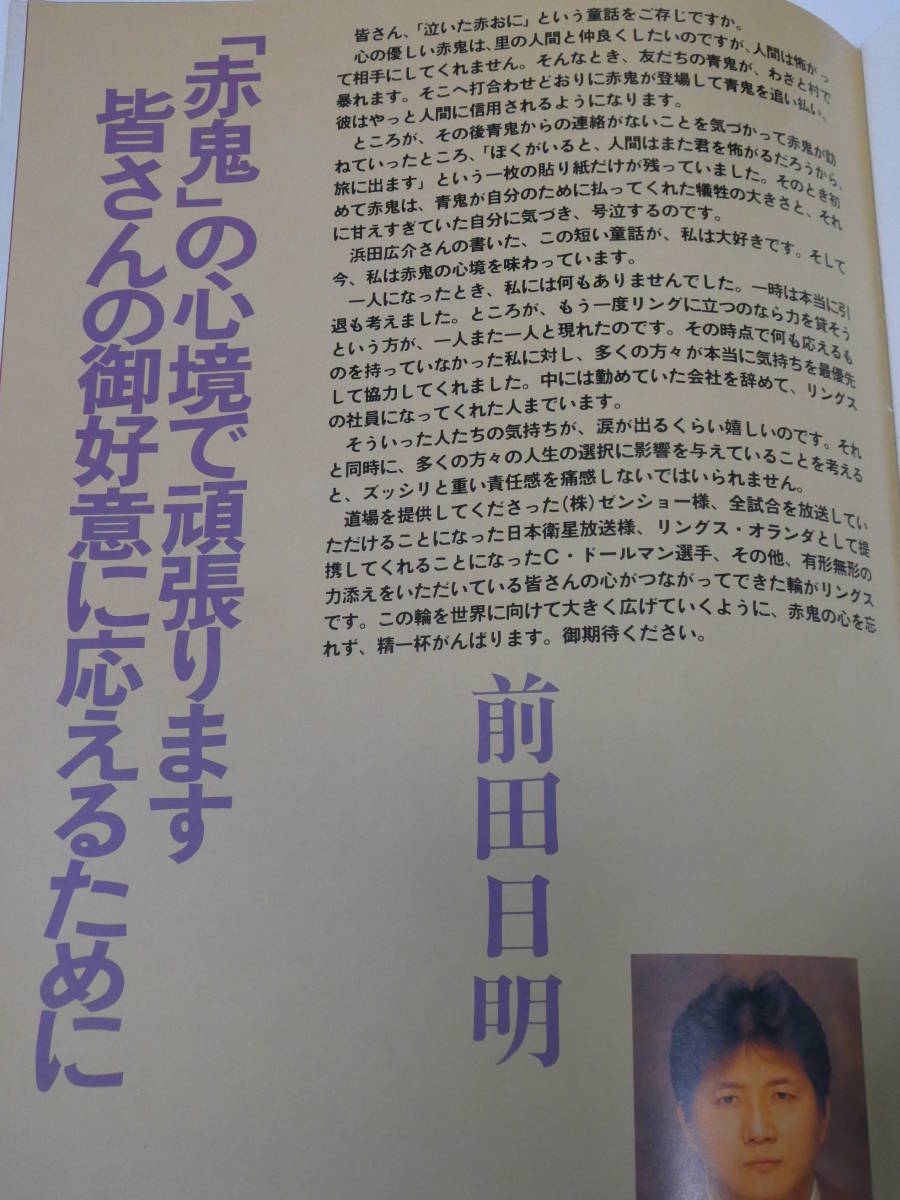 「赤鬼」の心境で頑張ります
皆さんの御好意に応えるために
皆さん、「泣いた赤おに」という童話をご存じですか。
心の優しい赤鬼は、里の人間と仲良くしたいのですが、人間は怖がっ
て相手にしてくれません。そんなとき、友だちの青鬼が、わざと村で
暴れます。そこへ打合わせどおりに赤鬼が登場して青鬼を追い払い、
彼はやっと人間に信用されるようになります。
ところが、その後青鬼からの連絡がないことを気づかって赤鬼が訪
ねていったところ、「ぼくがいると、人間はまた君を怖がるだろうから、
旅に出ます」という一枚の貼り紙だけが残っていました。そのとき初
めて赤鬼は、青鬼が自分のために払ってくれた犠牲の大きさと、それ
に甘えすぎていた自分に気づき、号泣するのです。
浜田広介さんの書いた、この短い童話が、私は大好きです。そして
今、私は赤鬼の心境を味わっています。
一人になったとき、私には何もありませんでした。一時は本当に引
退も考えました。ところが、もう一度リングに立つのなら力を貸そう
という方が、一人また一人と現れたのです。その時点で何も応えるも
のを持っていなかった私に対し、多くの方々が本当に気持ちを最優先
して協力してくれました。中には勤めていた会社を辞めて、リングス
の社員になってくれた人までいます。
そういった人たちの気持ちが、涙が出るくらい嬉しいのです。それ
と同時に、多くの方々の人生の選択に影響を与えていることを考える
と、ズッシリと重い責任感を痛感しないではいられません。
道場を提供してくださった(株)ゼンショー様、全試合を放送してい
ただけることになった日本衛星放送様、リングス・オランダとして提
携してくれることになったC・ドールマン選手、その他、有形無形の
力添えをいただいている皆さんの心がつながってできた輪がリングス
です。この輪を世界に向けて大きく広げていくように、赤鬼の心を忘
れず、精一杯がんばります。御期待ください。
前田日明